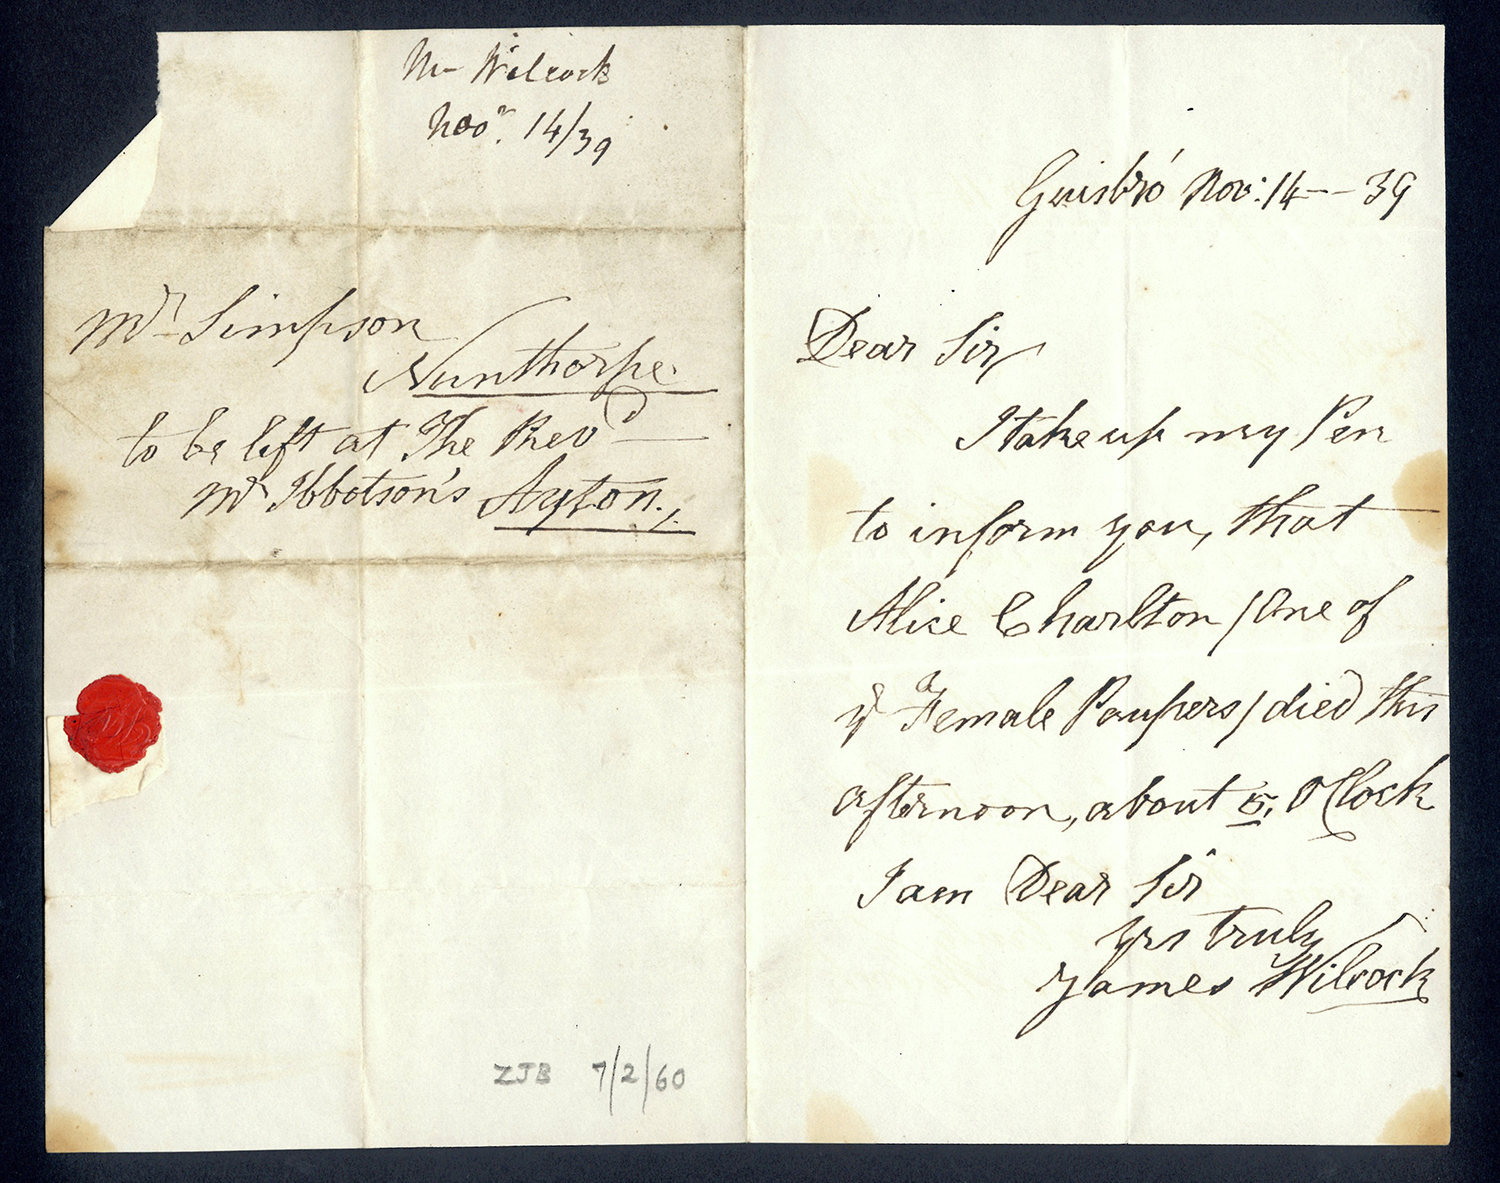 Mr Wilcock
Novr. 14/39
Mr Simpson
Nunthorpe
to be left at The Revd
Mr Ibbotson's Ayton
Guisbro' Nov: 14 - - 39
Dear Sir
I take up my Pen
to inform you, that
Alice Charlton / One of
ye Female Paupers / died this
afternoon, about 5, O'Clock
I am Dear Sir
Yrs truly
James Wilcock
ZJB 7/2/60